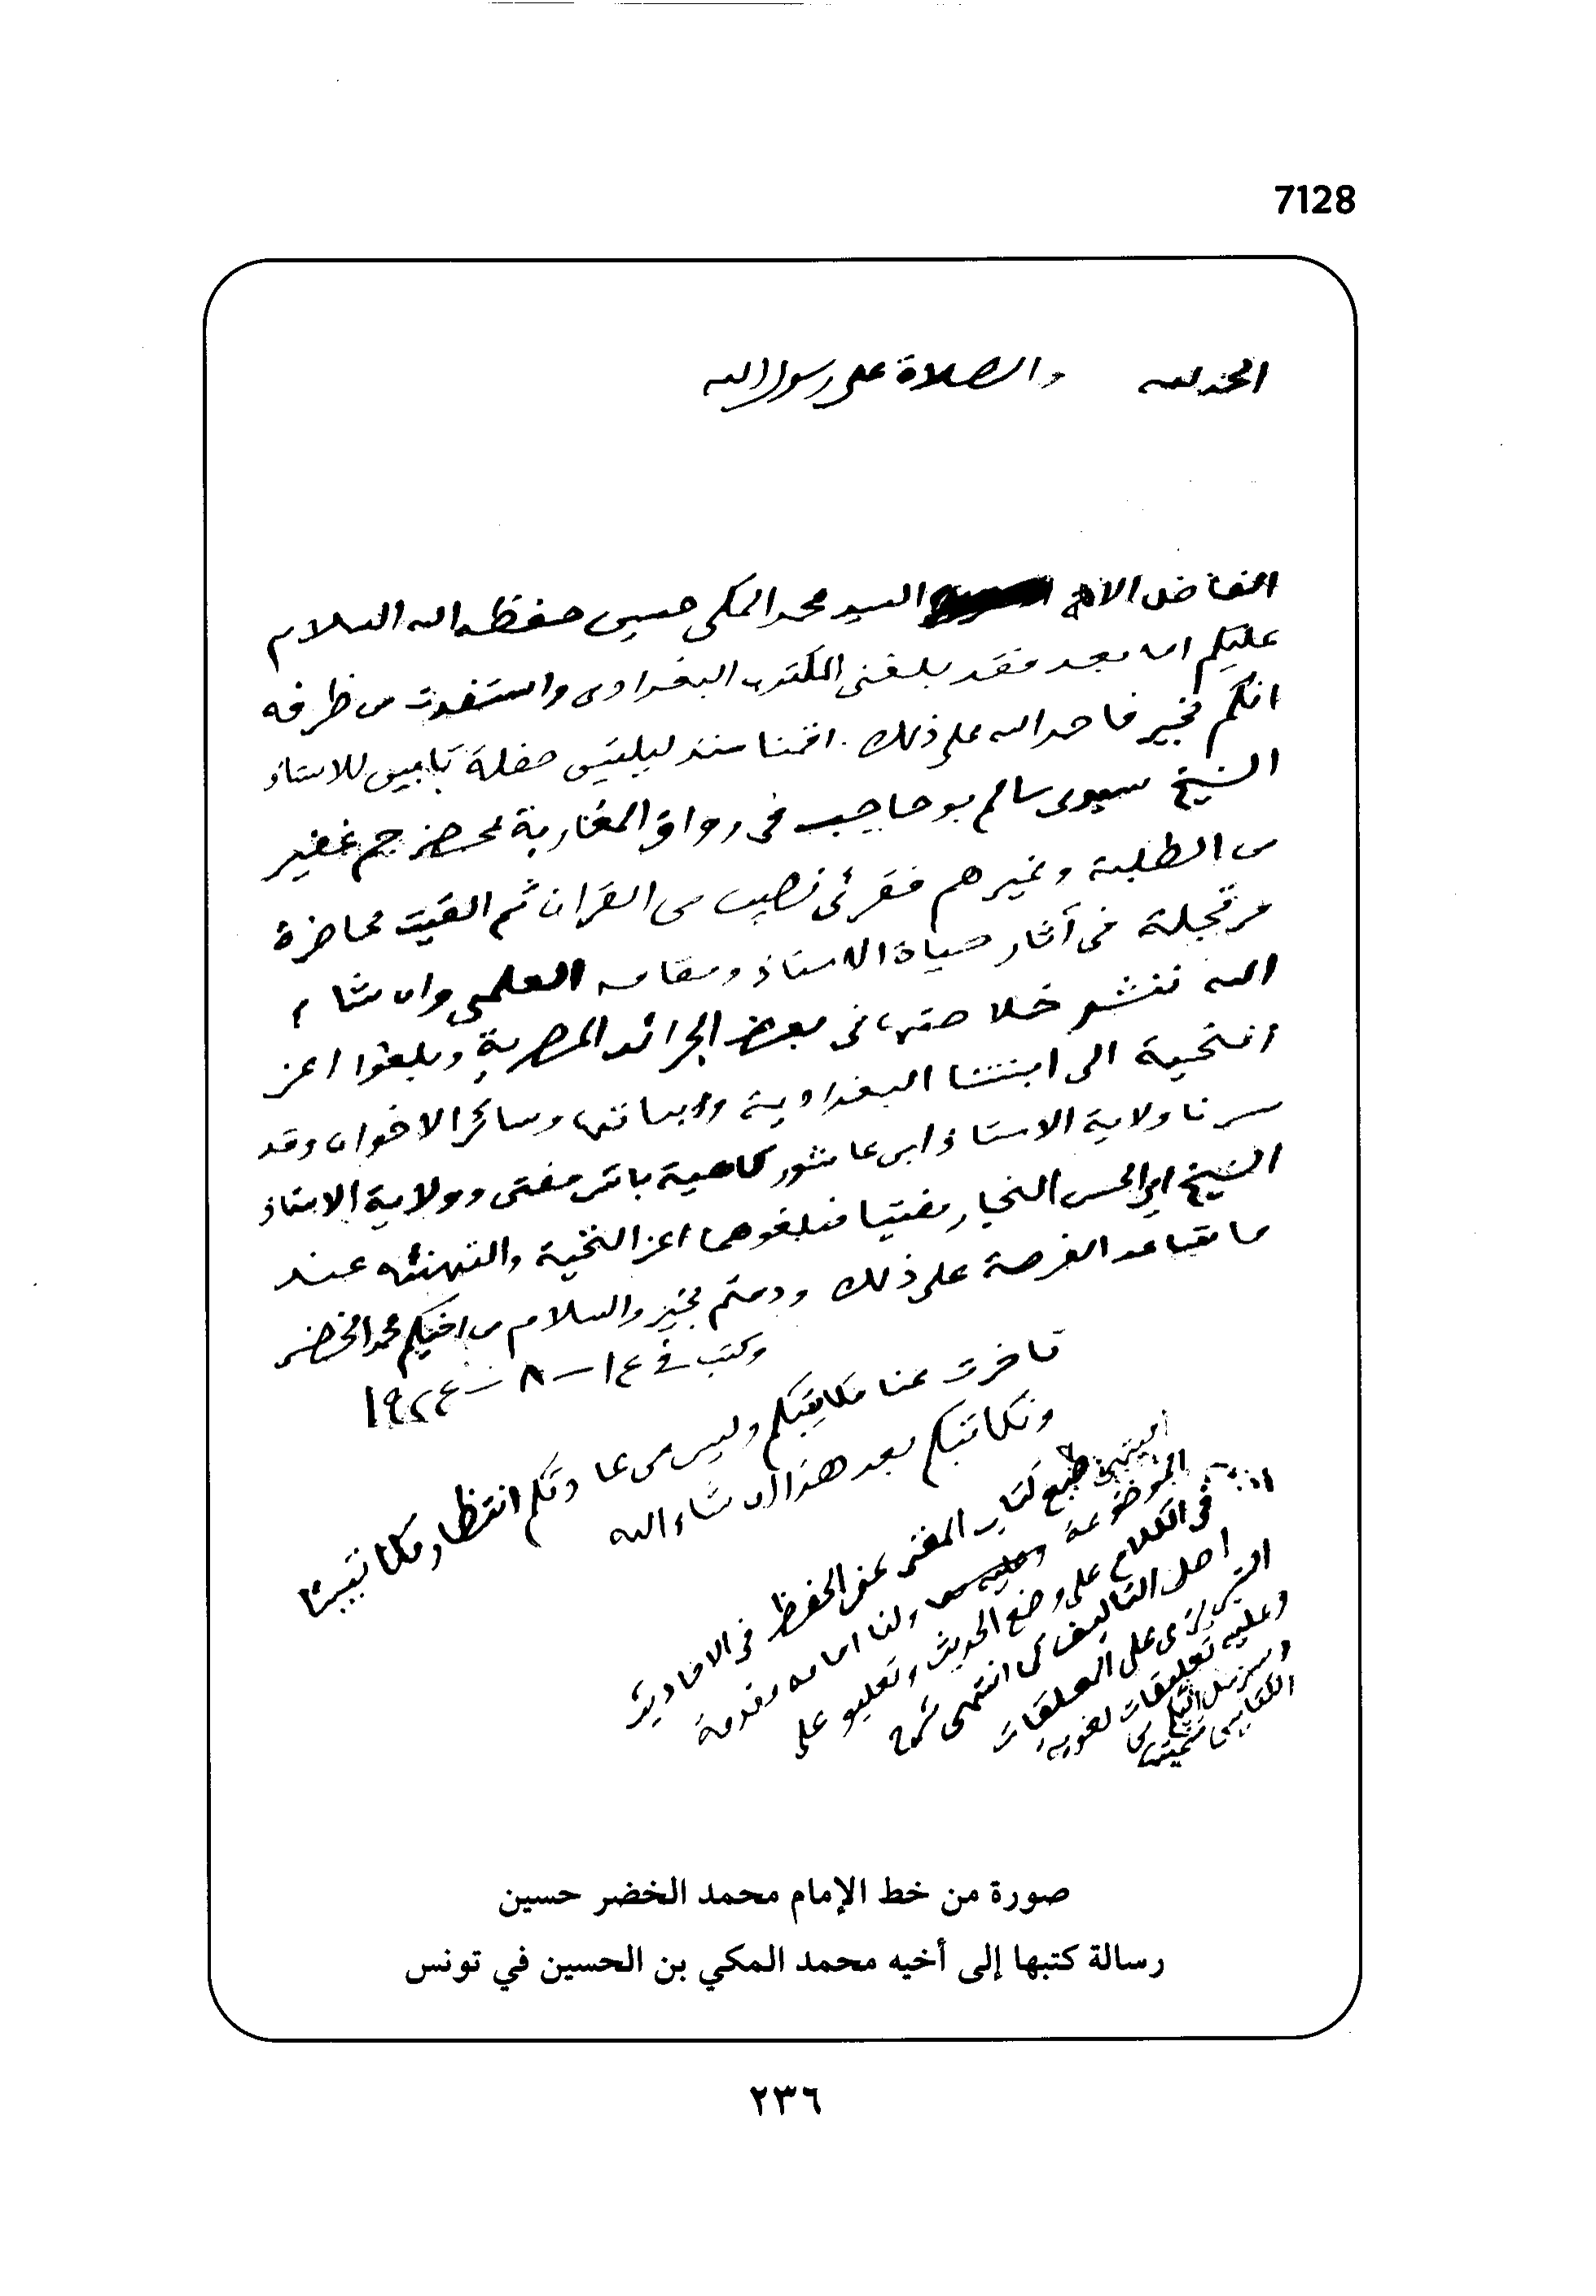 7128
الحمد لله والصلاة على رسول الله
الفاضل الاخ السيد محمد المكي حسين حفظه الله السلام
عليكم اما بعد فقد بلغني المكتوب البغدادي واستفدت من ظرفه
انكم بخير فاحمد الله على ذلك. اقمنا منذ ليلتين حفلة تابين للاستاذ
الشيخ سيدي سالم بو حاجب في رواق المغاربة بمحضر جم غفير
من الطلبة وغيرهم فقرئ نصيب من القرآن ثم القيت محاضرة
مرتجلة في آثار حياة الاستاذ ومقامه العلمي وان شاء
الله ننشر خلاصتها في بعض الجرائد المصرية وبلغوا اعز
التحية الى ابنتنا البغدادية وابنائها وسائر الاخوان وقد
سرنا ولاية الاستاذ ابن عاشور كاهية باش مفتي وولاية الاستاذ
الشيخ ابي الحسن النجار مفتيا فبلغوهما اعز التحية والتهنئه عند
ما تساعد الفرصة على ذلك ودمتم بخير والسلام من اخيكم محمد الخضر
وكتب في ١٤ – ٨ – ١٩٢٤
تاخرت عنا مكاتيبكم وليس من عادتكم انتظار مكاتيبنا
ونكاتبكم بعد هذا ان شاء الله
انتهى طبع كتاب المغني عن الحفظ في الاحاديث
الموضوعة ولنا امامه مقدمة
في الكلام على وضع الحديث وتعليق على
اصل التأليف كما انتهى شرح
التبريزي على المعلقات
وعليه تعليقات لغوية
وسنرسل اليكم من
الكتابين نسختين
صورة من خط الإمام محمد الخضر حسين
رسالة كتبها إلى أخيه محمد المكي بن الحسين في تونس
٢٣٦